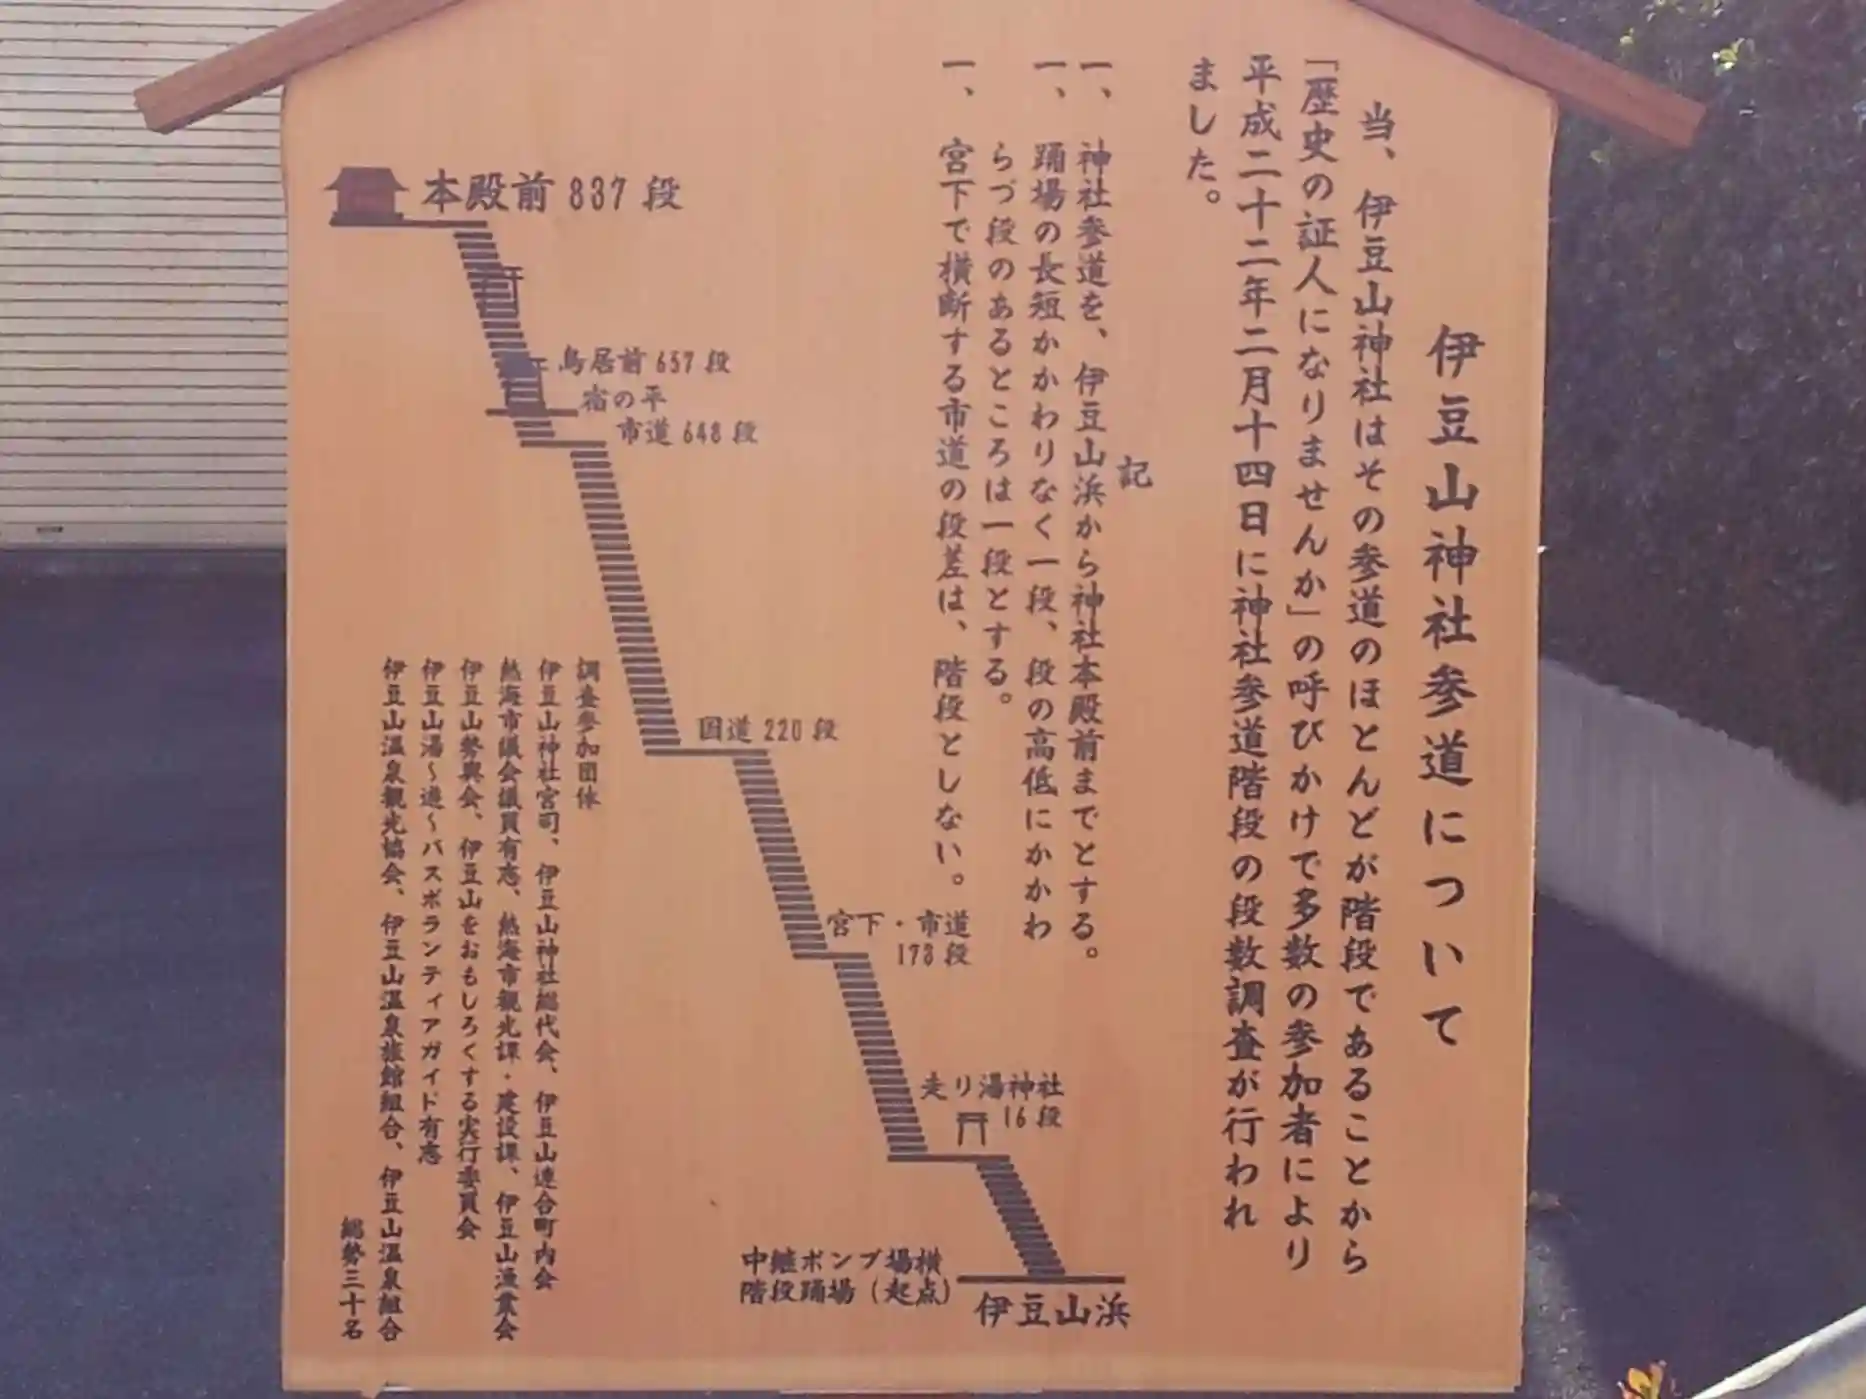 伊豆山神社参道について
当、伊豆山神社はその参道のほとんどが階段であることから
「歴史の証人になりませんか」の呼びかけで多数の参加者により
平成二十二年二月十四日に神社参道階段の段数調査が行われ
ました。
記
一、神社参道を、伊豆山浜から神社本殿前までとする。
一、踊場の長短かかわりなく一段、段の高低にかかわ
らづ段のあるところは一段とする。
一、宮下で横断する市道の段差は、階段としない。
本殿前 837 段
鳥居前 657 段
宿の平
市道 648 段
国道 220 段
宮下・市道
173 段
走り湯神社
16 段
中継ポンプ場横
階段踊場(起点)
伊豆山浜
調査参加団体
伊豆山神社宮司、伊豆山神社総代会、伊豆山連合町内会
熱海市議会議員有志、熱海市観光課・建設課、伊豆山漁業会
伊豆山勢興会、伊豆山をおもしろくする実行委員会
伊豆山湯～遊～バスボランティアガイド有志
伊豆山温泉観光協会、伊豆山温泉旅館組合、伊豆山温泉組合
総勢三十名